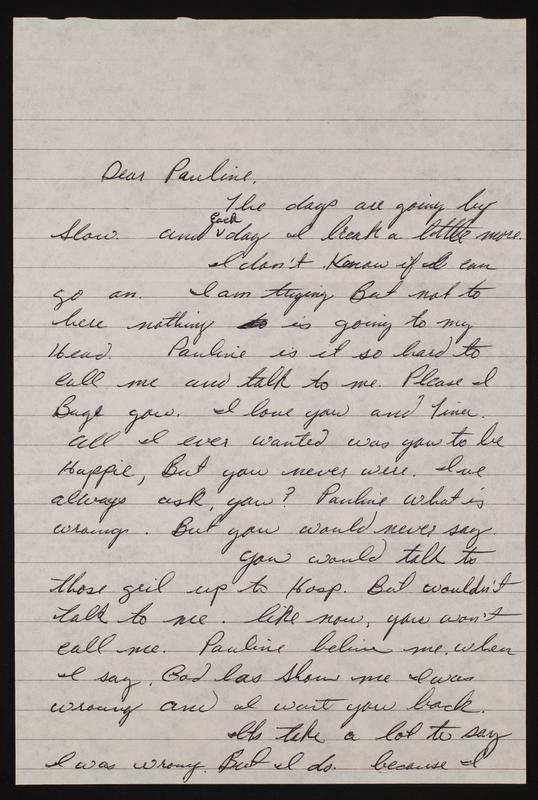 Dear Pauline,
The days are going by
slow. and Each day I break a little more.
I don't Know if I can
go on. I am trying But not to
here nothing is going to my
Head. Pauline is it so hard to
Call me and talk to me. Please I
Bage you. I love you and Tina.
all I ever wanted was you to be
Happie, But you never were. I've
always ask, you? Pauline what is
wroung. But you would never say.
You would talk to
those gril up to Hosp. But wouldn't
talk to me. like now, you won't
call me. Pauline belive me, when
I say, God has show me I was
wroung and I want you back.
Its take a lot to say
I was wrong. But I do. because I